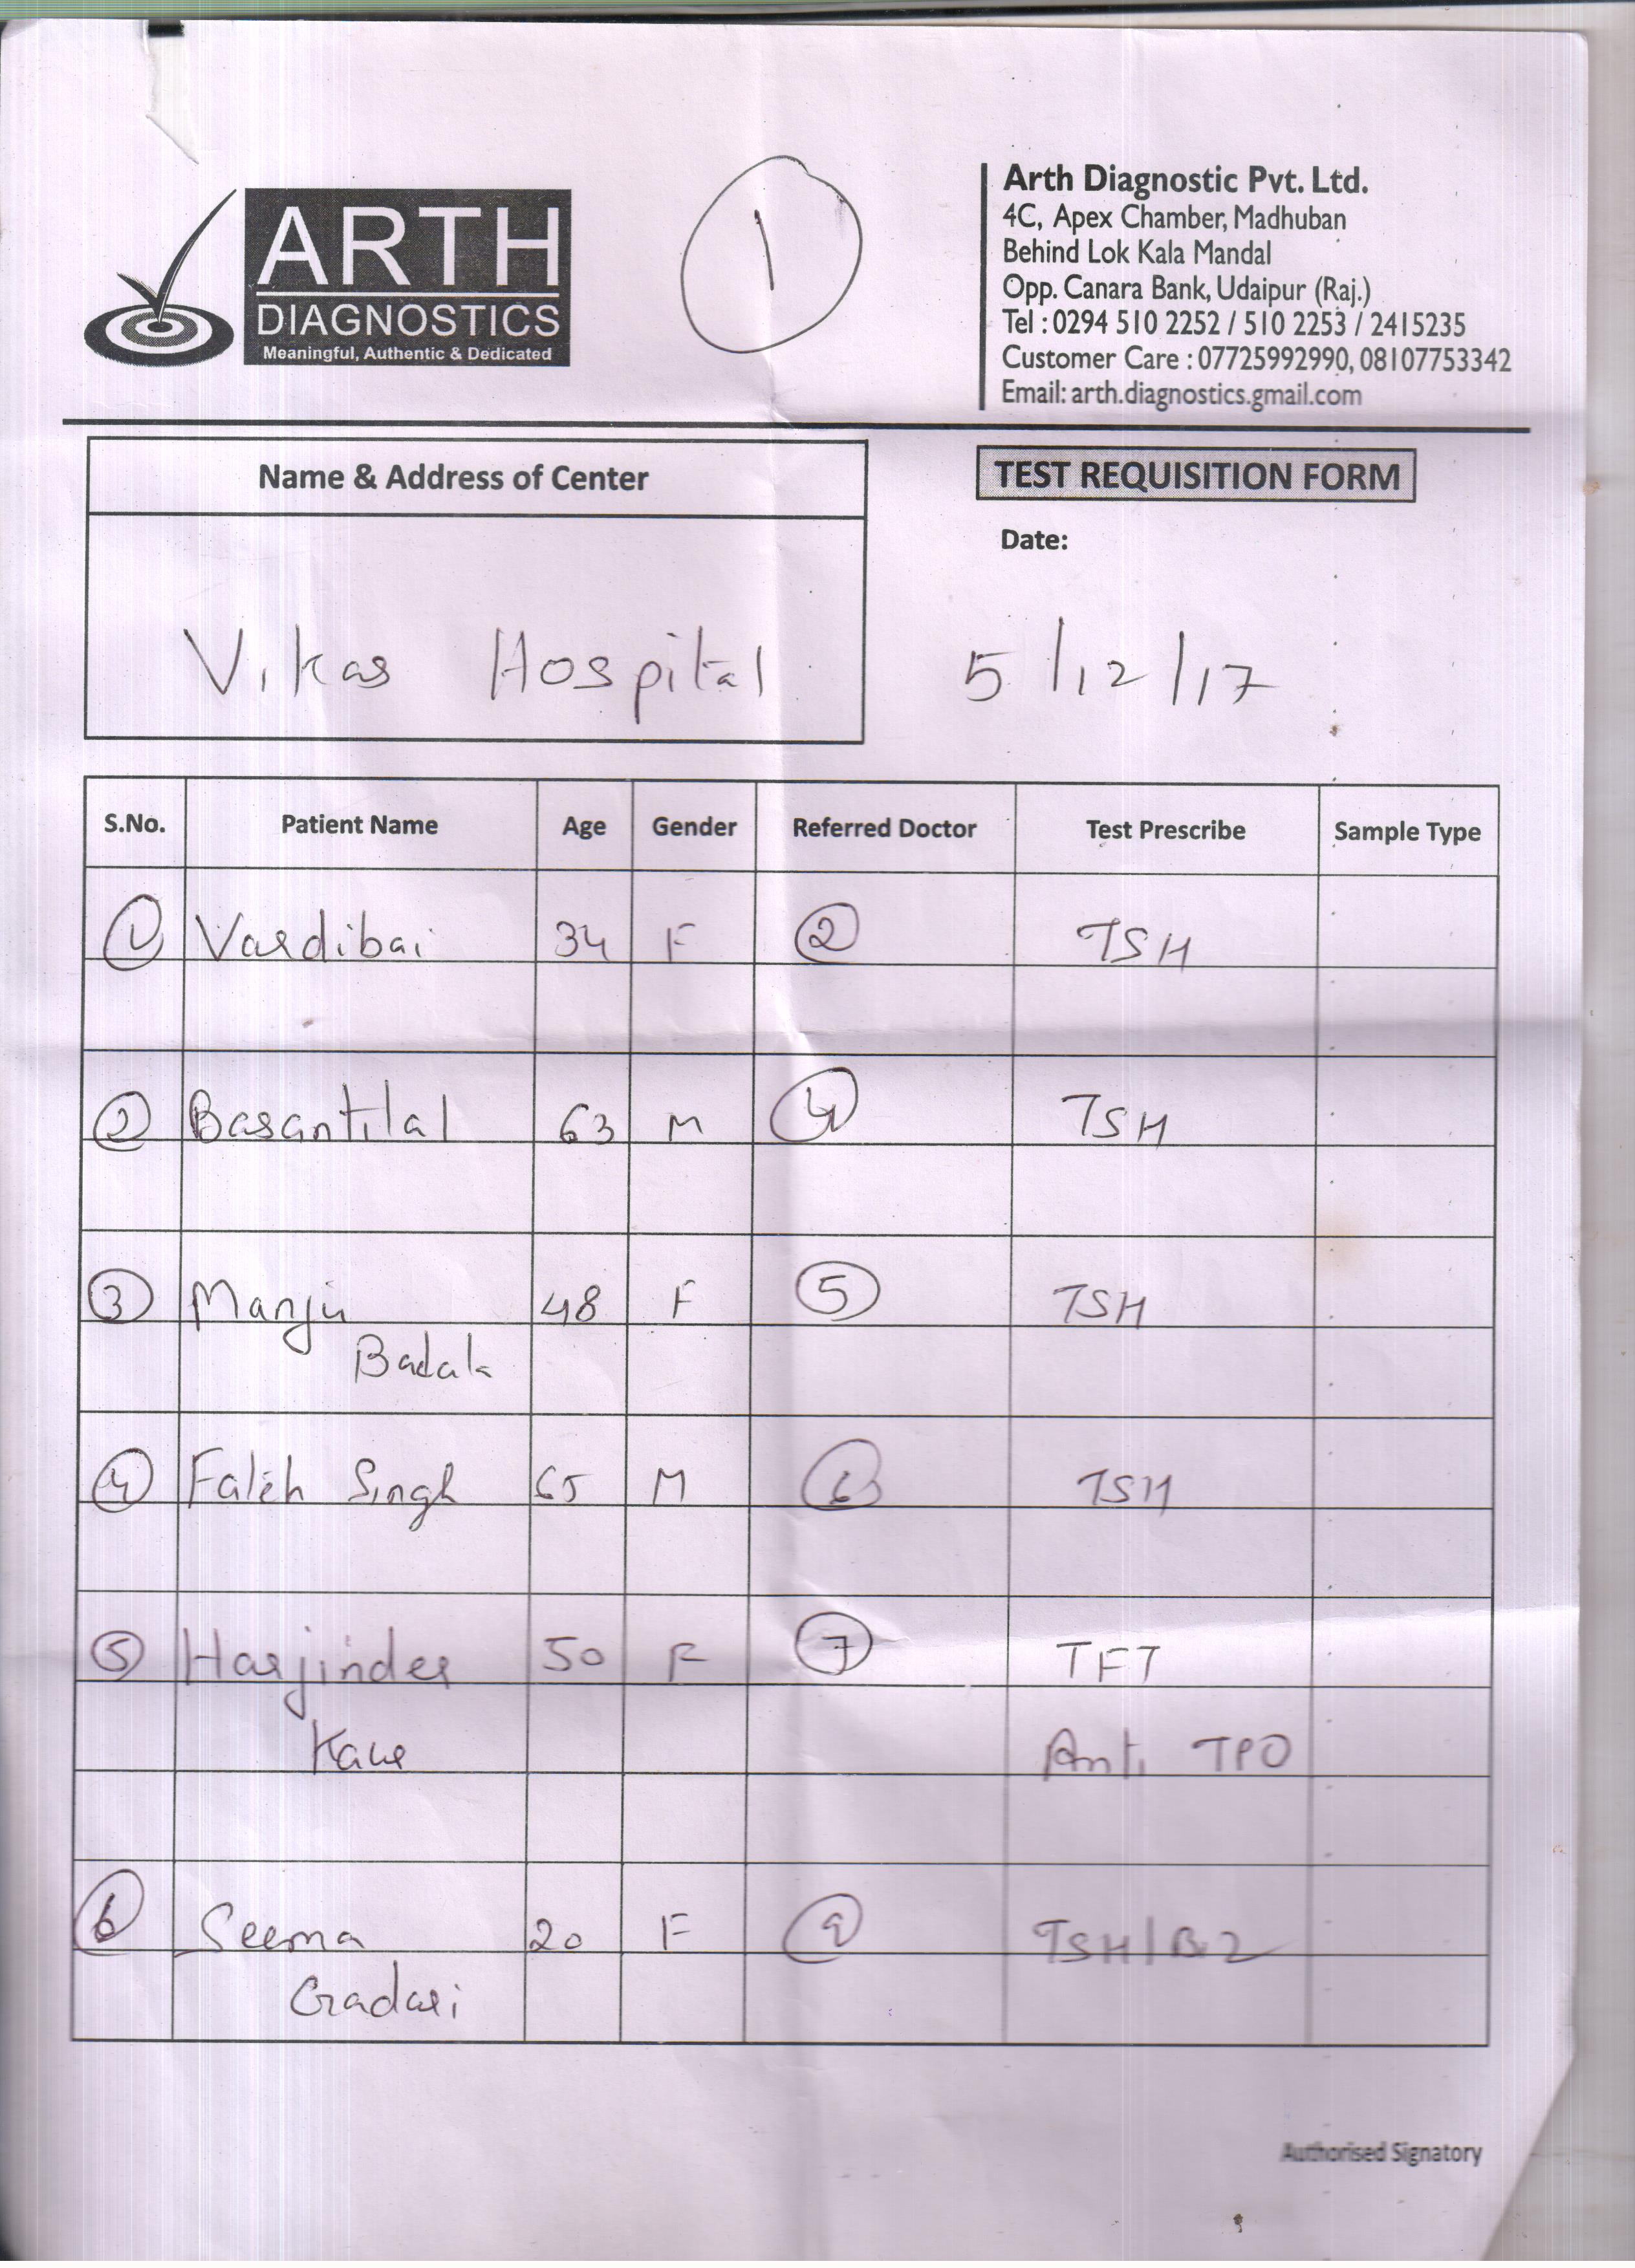 ARTH
DIAGNOSTICS
Meaningful, Authentic & Dedicated
1
Arth Diagnostic Pvt. Ltd.
4C, Apex Chamber, Madhuban
Behind Lok Kala Mandal
Opp. Canara Bank, Udaipur (Raj.)
Tel : 0294 510 2252 / 510 2253 / 2415235
Customer Care : 07725992990, 08107753342
Email: arth.diagnostics.gmail.com
Name & Address of Center
TEST REQUISITION FORM
Date:
Vikas Hospital 5/12/17
S.No. Patient Name Age Gender Referred Doctor Test Prescribe Sample Type
1 Vardibai 34 F 2 TSH
2 Basantilal 63 M 4 TSH
3 Manju 48 F 5 TSH
Badala
4 Fateh Singh 65 M 6 TSH
5 Harjinder 50 F 7 TFT
Kaur Anti TPO
6 Seema 20 F 9 TSH/B12
Gradari
Authorised Signatory